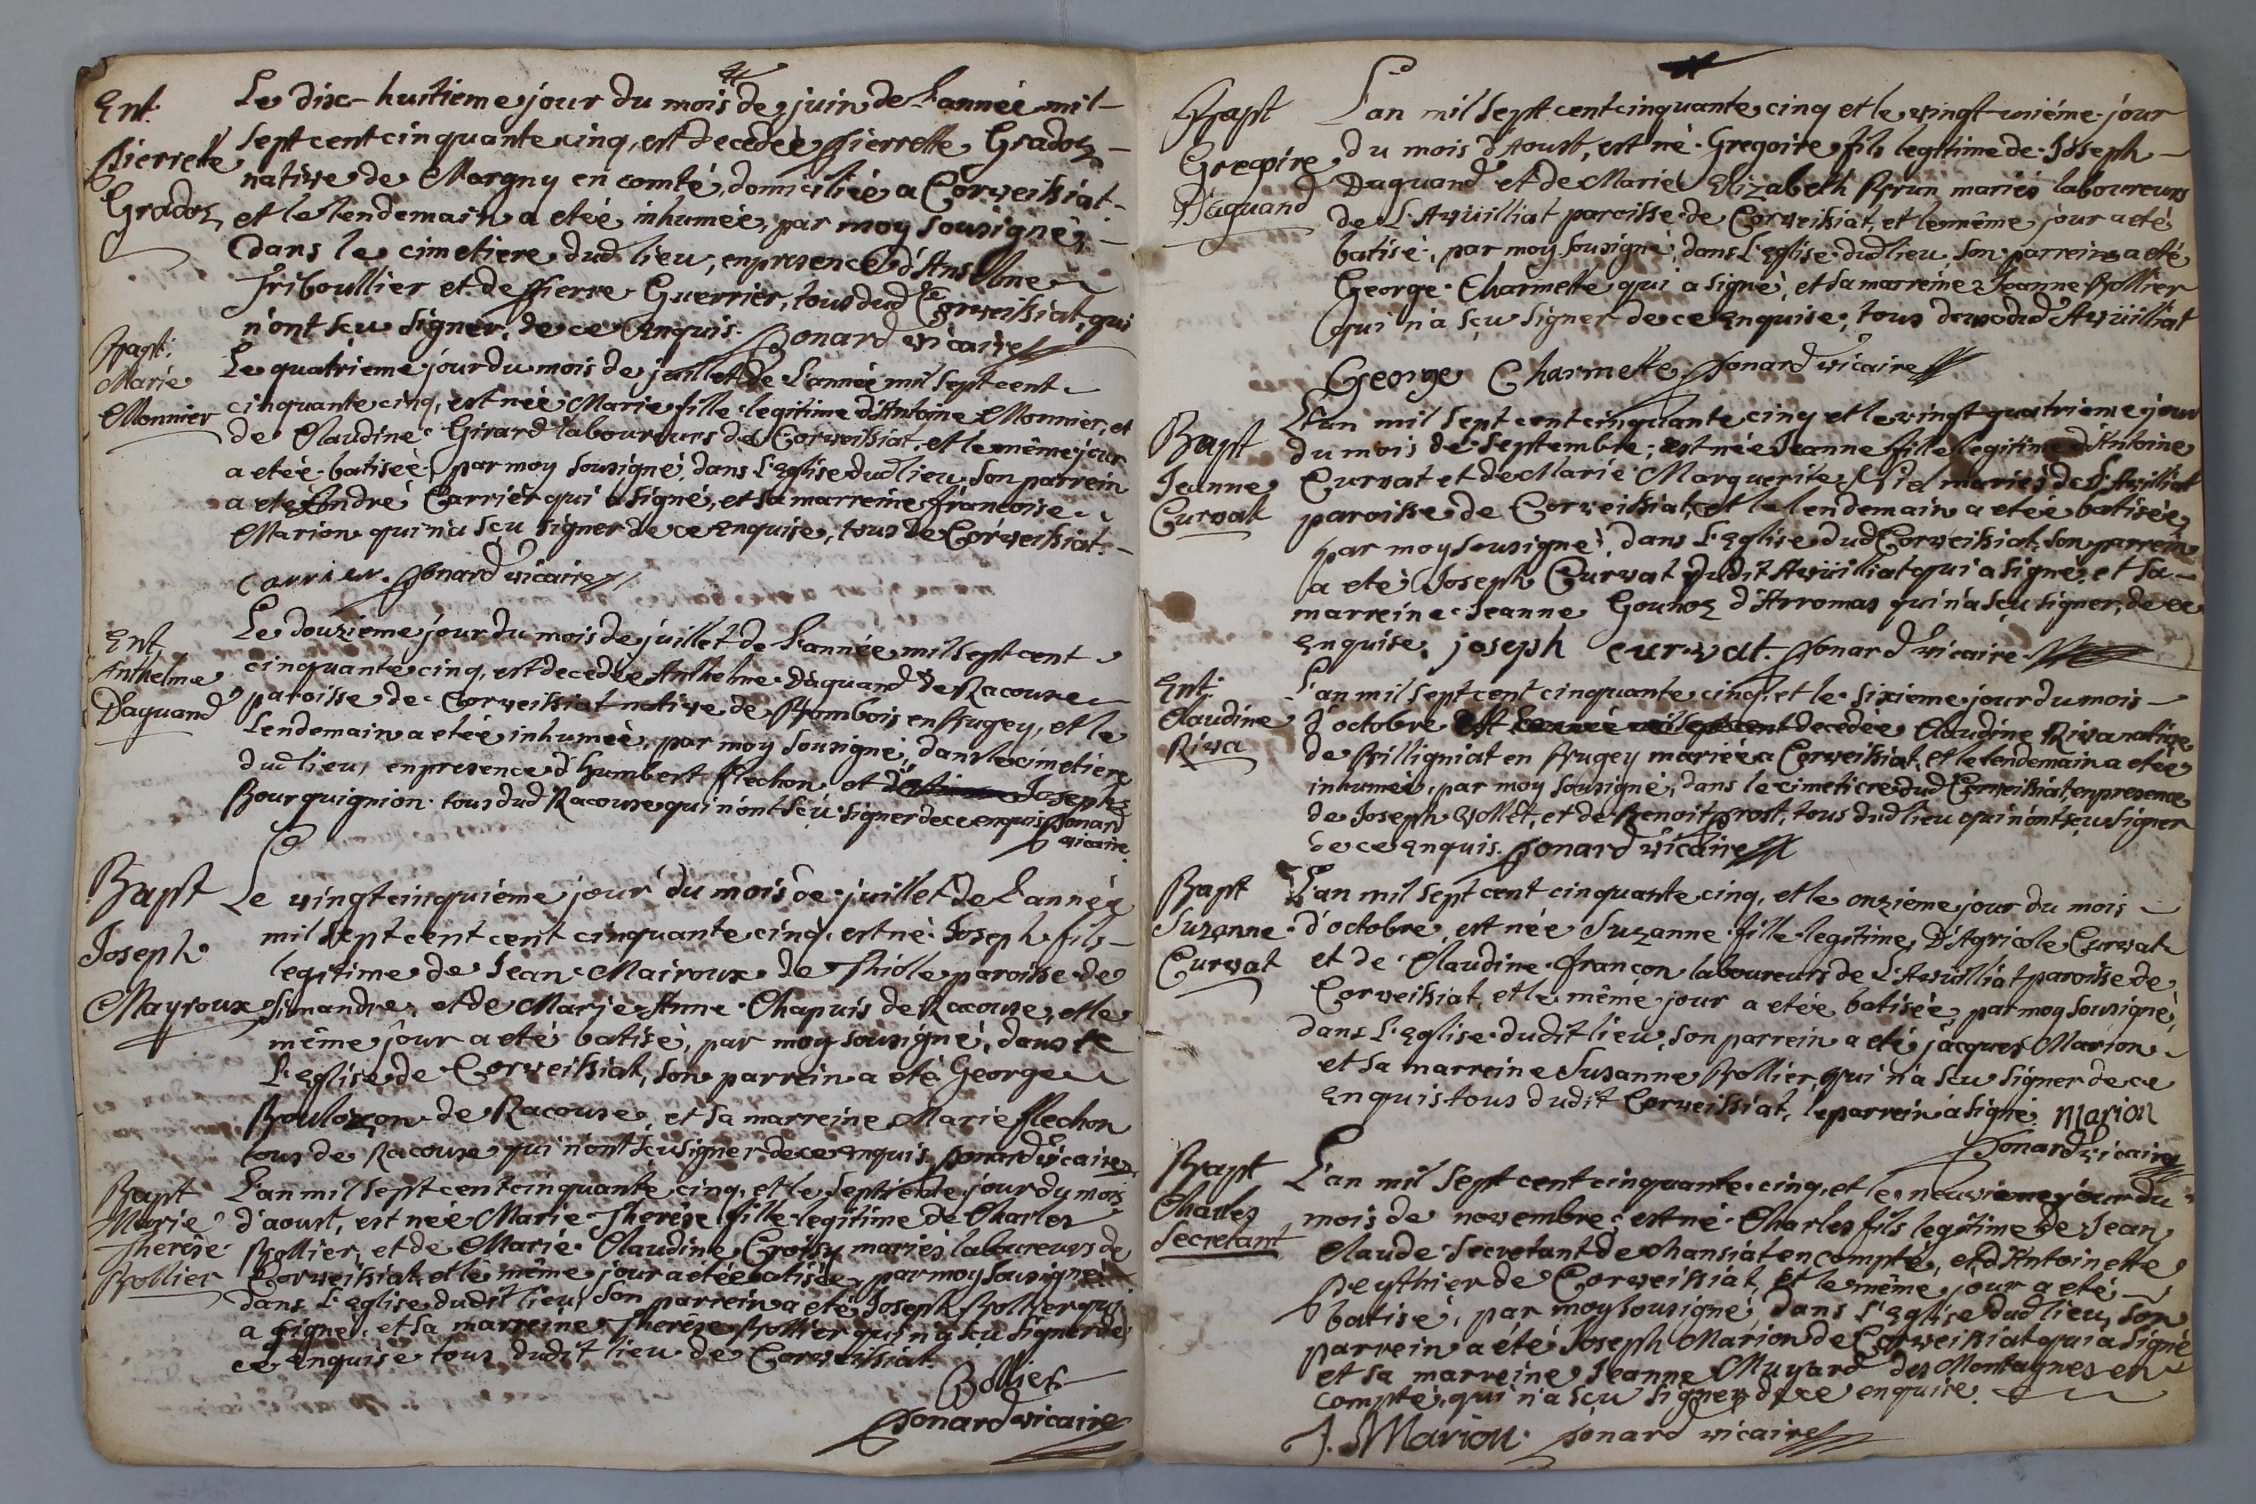 Ent.
Pierrette
Gradoz
Le dix-huitieme jour du mois de juin de l'année mil-
sept cent cinquante cinq, est decedée Pierrette Gradoz
native de Margny en comté, domiciliée a Corveissiat.
et le lendemain a etée inhumée, par moy sousigné,
dans le cimetiere dud lieu, en presence d'Anselme
Triboullier et de Pierre Guerrier, tous dud Corveissiat, qui
n'ont sçu signer, de ce enquis. Bonard vicaire
Bapt:
Marie
Monnier
Le quatrieme jour du mois de juillet de l'année mil sept cent
cinquante cinq, est née Marie fille legitime d'Antoine Monnier, et
de Claudine Girard laboureurs de Corveissiat. et le même jour
a etée batisée, par moy sousigné, dans l'Eglise dud lieu, son parrein
a eté André Carrier qui a signé, et sa marreine françoise
Marion qui n'a sçu signer de ce enquise, tous de Corveissiat.
Carrier. Bonard vicaire
Ent
Anthelme
Daguand
Le douzieme jour du mois de juillet de l'année mil sept cent
cinquante cinq, est decedée Anthelme Daguand de Racouse
paroisse de Corveissiat native de Bombois en Bugey, et le
lendemain a etée inhumée, par moy sousigné, dans le cimetiere
dud lieu, en presence d'Humbert flechon et Joseph
Bourguignion tous dud Racouse qui n'ont sçu signer de ce enquis Bonard
vicaire.
Bapt
Joseph
Mayroux
Le vingt cinquiéme jour du mois de juillet de l'année
mil sept cent cent cinquante cinq, est né Joseph fils
legitime de Jean Mairoux de Thiole paroisse de
Simandre, et de Marie Anne Chapuis de Racouse, et le
même jour a eté batisé, par moy sousigné, dans
l'Eglise de Corveissiat, son parrein a eté George
Boulozon de Racouse, et sa marreine Marie flechon
tous de Racouse qui n'ont sçu signer de ce enquis. Bonard vicaire
Bapt
Marie
Therèse
Bollier
L'an mil sept cent cinquante cinq, et le septiéme jour du mois
d'aoust, est née Marie Therèse fille legitime de Charles
Bollier, et de Marie Claudine Croisy mariés laboureurs de
Corveissiat, et le même jour a etée batisée, par moy sousigné
dans l'Eglise dudit lieu, son parrein a eté Joseph Bollier qui
a signé, et sa marreine Therèse Bollier qui n'a sçu signer de
ce enquise tous dudit lieu de Corveissiat.
Bollier
Bonard vicaire
Bapt
Gregoire
Daguand
L'an mil sept cent cinquante cinq et le vingt-uniéme jour
du mois d'Aoust, est né Gregoire fils legitime de Joseph
Daguand et de Marie Elizabeth Brun mariés laboureurs
de L'Avüilliat paroisse de Corveissiat, et le même jour a eté
batisé, par moy sousigné, dans l'Eglise dud lieu, son parrein a eté
George Charmette qui a signé, et sa marreine Jeanne Bollier
qui n'a sçu signer de ce enquise, tous dud Avüilliat
George Charmette Bonard vicaire
Bapt
Jeanne
Curvat
L'an mil sept cent cinquante cinq et le vingt-quatrieme jour
du mois de Septembre, est née Jeanne fille legitime d'Antoine
Curvat et de Marie Marguerite mariés de L'Avilliat
paroisse de Corveissiat, et le lendemain a etée batisée
par moy sousigné, dans l'Eglise dud Corveissiat, son parrein
a eté Joseph Curvat dudit Avüilliat qui a signé, et sa
marreine Jeanne Gounoz d'Arromas qui n'a sçu signer, de ce
enquise. joseph curvat. Bonard vicaire
Ent:
Claudine
Riva
L'an mil sept cent cinquante cinq, et le sixieme jour du mois
d'octobre est decedée Claudine Riva native
de Billigniat en Bugey mariée a Corveissiat, et le lendemain a etée
inhumée, par moy sousigné, dans le cimetiere dud Corveissiat en presence
de Joseph Vollet, et de Benoit Prost, tous dud lieu qui n'ont sçu signer
de ce enquis. Bonard vicaire
Bapt
Suzanne
Curvat
L'an mil sept cent cinquante cinq, et le onziéme jour du mois
d'octobre, est née Suzanne fille legitime, D'Agricole Curvat
et de Claudine françon laboureurs de L'Avuilliat paroisse de
Corveissiat, et le même jour a etée batisée, par moy sousigné,
dans l'Eglise dudit lieu, son parrein a eté jâcques Marion
et sa marreine Susanne Bollier, qui n'a sçu signer de ce
enquis tous dudit Corveissiat, le parrein a signé. Marion
Bonard vicaire
Bapt
Charles
Secretant
L'an mil sept cent cinquante cinq, et le neuvieme jour du
mois de novembre, est né Charles fils legitime de Jean
Claude Secretant de Chansiat en compté, et d'Antoinette
Peysthier de Corveissiat, et le même jour a eté
batisé, par moy sousigné, dans l'Eglise dud lieu, son
parrein a été Joseph Marion de Corveissiat qui a signé
et sa marreine Jeanne Muyard des Montagnes en
compté, qui n'a sçu signer de ce enquise.
J. Marion. Bonard vicaire